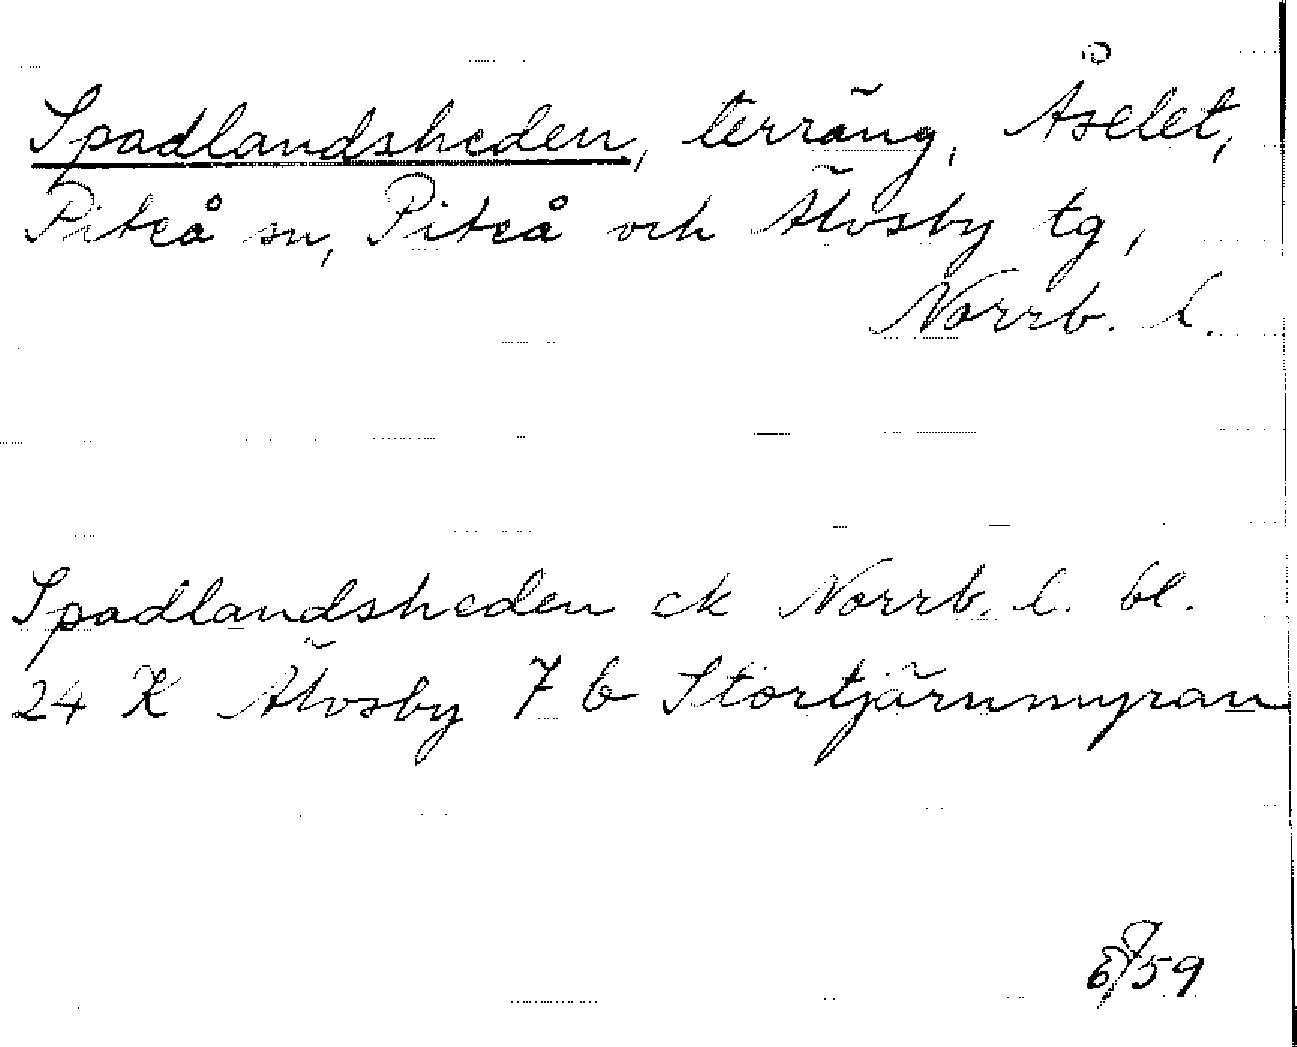 Spadlandsheden, terräng, Åselet,
Piteå sn, Piteå och Älvsby tg,
Norrb. l.
Spadlandsheden ek Norrb. l. bl.
24 K Älvsby 7 b Stortjärnmyran